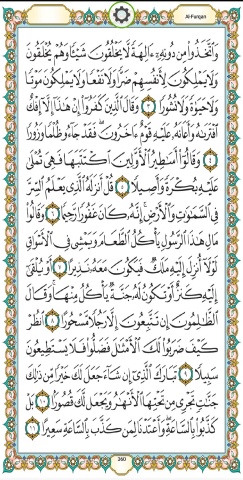 Al-Furqan
وَٱتَّخَذُوا۟ مِن دُونِهِۦٓ ءَالِهَةً لَّا يَخْلُقُونَ شَيْـًٔا وَهُمْ يُخْلَقُونَ
وَلَا يَمْلِكُونَ لِأَنفُسِهِمْ ضَرًّا وَلَا نَفْعًا وَلَا يَمْلِكُونَ مَوْتًا
وَلَا حَيَوٰةً وَلَا نُشُورًا ٣ وَقَالَ ٱلَّذِينَ كَفَرُوٓا۟ إِنْ هَٰذَآ إِلَّآ إِفْكٌ
ٱفْتَرَىٰهُ وَأَعَانَهُۥ عَلَيْهِ قَوْمٌ ءَاخَرُونَ ۖ فَقَدْ جَآءُو ظُلْمًا وَزُورًا
٤ وَقَالُوٓا۟ أَسَٰطِيرُ ٱلْأَوَّلِينَ ٱكْتَتَبَهَا فَهِىَ تُمْلَىٰ
عَلَيْهِ بُكْرَةً وَأَصِيلًا ٥ قُلْ أَنزَلَهُ ٱلَّذِى يَعْلَمُ ٱلسِّرَّ
فِى ٱلسَّمَٰوَٰتِ وَٱلْأَرْضِ ۚ إِنَّهُۥ كَانَ غَفُورًا رَّحِيمًا ٦ وَقَالُوا۟
مَالِ هَٰذَا ٱلرَّسُولِ يَأْكُلُ ٱلطَّعَامَ وَيَمْشِى فِى ٱلْأَسْوَاقِ ۙ
لَوْلَآ أُنزِلَ إِلَيْهِ مَلَكٌ فَيَكُونَ مَعَهُۥ نَذِيرًا ٧ أَوْ يُلْقَىٰٓ
إِلَيْهِ كَنزٌ أَوْ تَكُونُ لَهُۥ جَنَّةٌ يَأْكُلُ مِنْهَا ۚ وَقَالَ
ٱلظَّٰلِمُونَ إِن تَتَّبِعُونَ إِلَّا رَجُلًا مَّسْحُورًا ٨ ٱنظُرْ
كَيْفَ ضَرَبُوا۟ لَكَ ٱلْأَمْثَٰلَ فَضَلُّوا۟ فَلَا يَسْتَطِيعُونَ
سَبِيلًا ٩ تَبَارَكَ ٱلَّذِىٓ إِن شَآءَ جَعَلَ لَكَ خَيْرًا مِّن ذَٰلِكَ
جَنَّٰتٍ تَجْرِى مِن تَحْتِهَا ٱلْأَنْهَٰرُ وَيَجْعَل لَّكَ قُصُورًۢا ١٠ بَلْ
كَذَّبُوا۟ بِٱلسَّاعَةِ ۖ وَأَعْتَدْنَا لِمَن كَذَّبَ بِٱلسَّاعَةِ سَعِيرًا ١١
360